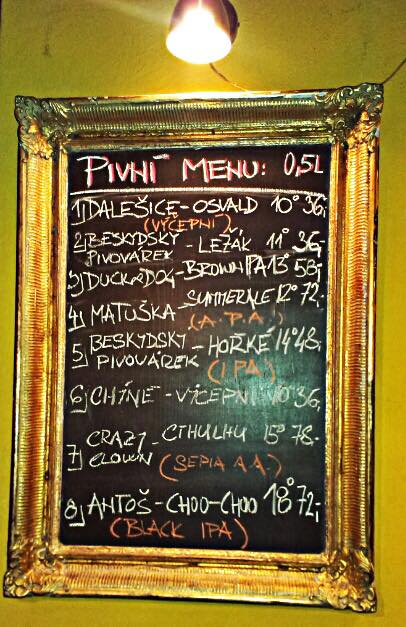 PIVNÍ MENU: 0,5L
1) DALEŠICE - OSVALD 10° 36,-
(VÝČEPNÍ)
2) BESKYDSKÝ PIVOVÁREK - LEŽÁK 11° 36,-
3) DUCK & DOG - BROWN IPA 13° 58,-
4) MATUŠKA - SUMMER ALE 12° 72,-
(A.P.A.)
5) BESKYDSKÝ PIVOVÁREK - HOŘKÉ 14° 48,-
(IPA)
6) CHÝNĚ - VÝČEPNÍ 10° 36,-
7) CRAZY CLOWN - CTHULHU 15° 78.-
(SEPIA A.A.)
8) ANTOŠ - CHOO-CHOO 18° 72,-
(BLACK IPA)